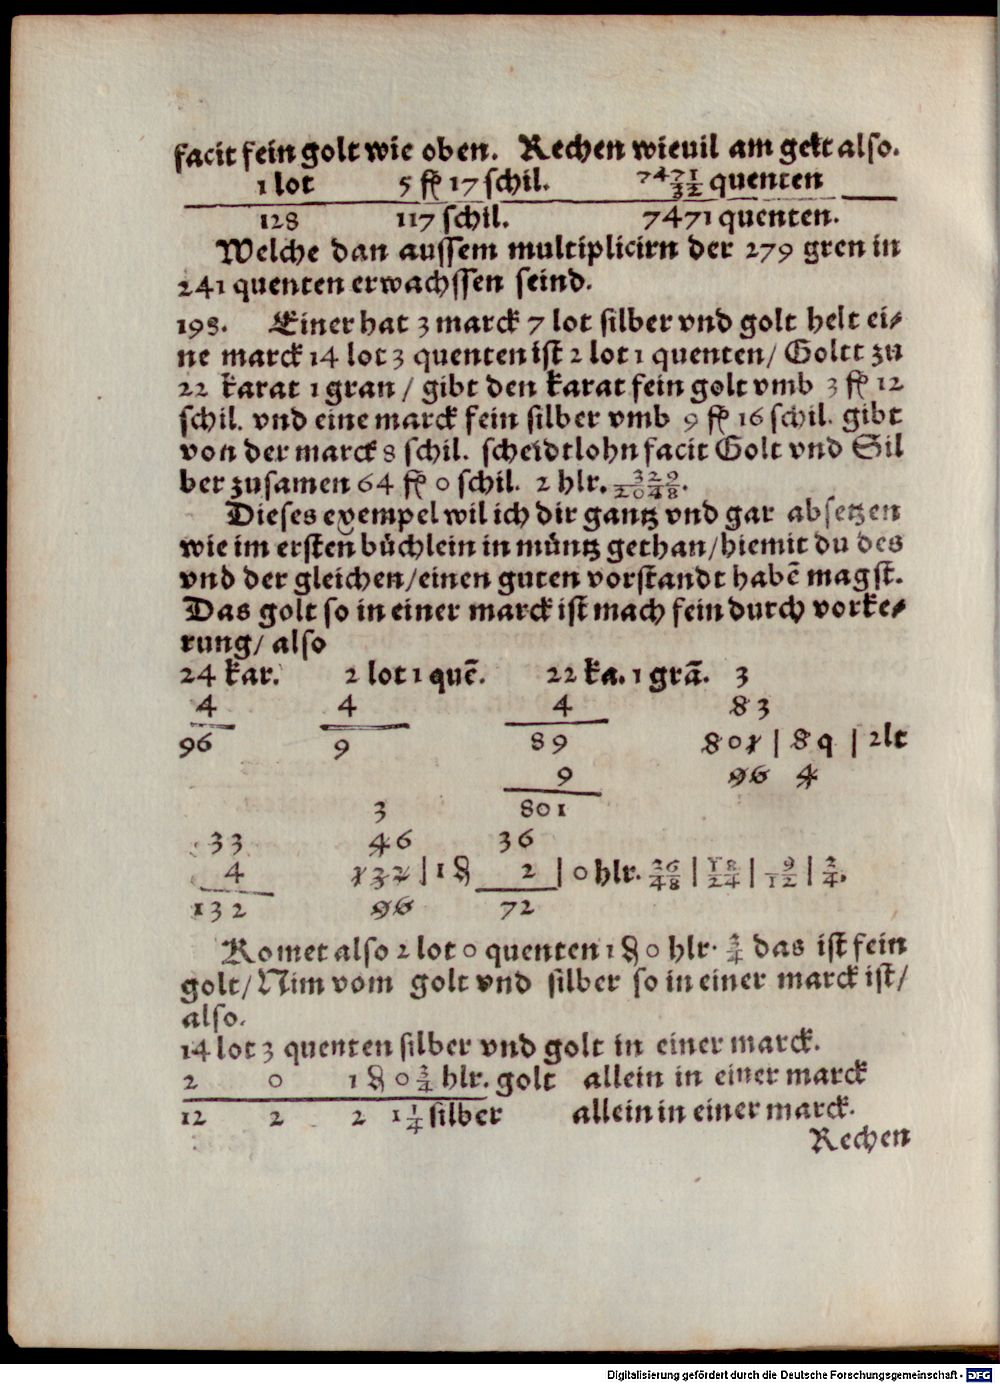 facit fein golt wie oben. Rechen wieuil am gelt also.
1 lot 5 fl 17 schil. 74 71/32 quenten
128 117 schil. 7471 quenten.
Welche dan aussem multiplicirn der 279 gren in
241 quenten erwachssen seind.
198. Einer hat 3 marck 7 lot silber vnd golt helt ei⸗
ne marck 14 lot 3 quenten ist 2 lot 1 quenten/ Goltt zu
22 karat 1 gran/ gibt den karat fein golt vmb 3 fl 12
schil. vnd eine marck fein silber vmb 9 fl 16 schil. gibt
von der marck 8 schil. scheidtlohn facit Golt vnd Sil
ber zusamen 64 fl 0 schil. 2 hlr. 329/2048.
Dieses exempel wil ich dir gantz vnd gar absetzen
wie im ersten büchlein in müntz gethan/hiemit du des
vnd der gleichen/einen guten vorstandt habē magst.
Das golt so in einer marck ist mach fein durch vorke⸗
rung/ also
24 kar. 2 lot 1 quē. 22 ka. 1 grā. 3
4 4 4 83
96 9 89 801 | 8 q | 2 lt
9 96 4
3 801
33 46 36
4 132 | 1 ₰ 2 | 0 hlr. 36/48 | 18/24 | 9/12 | 3/4.
132 96 72
Komet also 2 lot 0 quenten 1 ₰ 0 hlr. 3/4 das ist fein
golt/ Nim vom golt vnd silber so in einer marck ist/
also.
14 lot 3 quenten silber vnd golt in einer marck.
2 0 1 ₰ 0 3/4 hlr. golt allein in einer marck
12 2 2 1 1/4 silber allein in einer marck.
Rechen
Digitalisierung gefördert durch die Deutsche Forschungsgemeinschaft - DFG